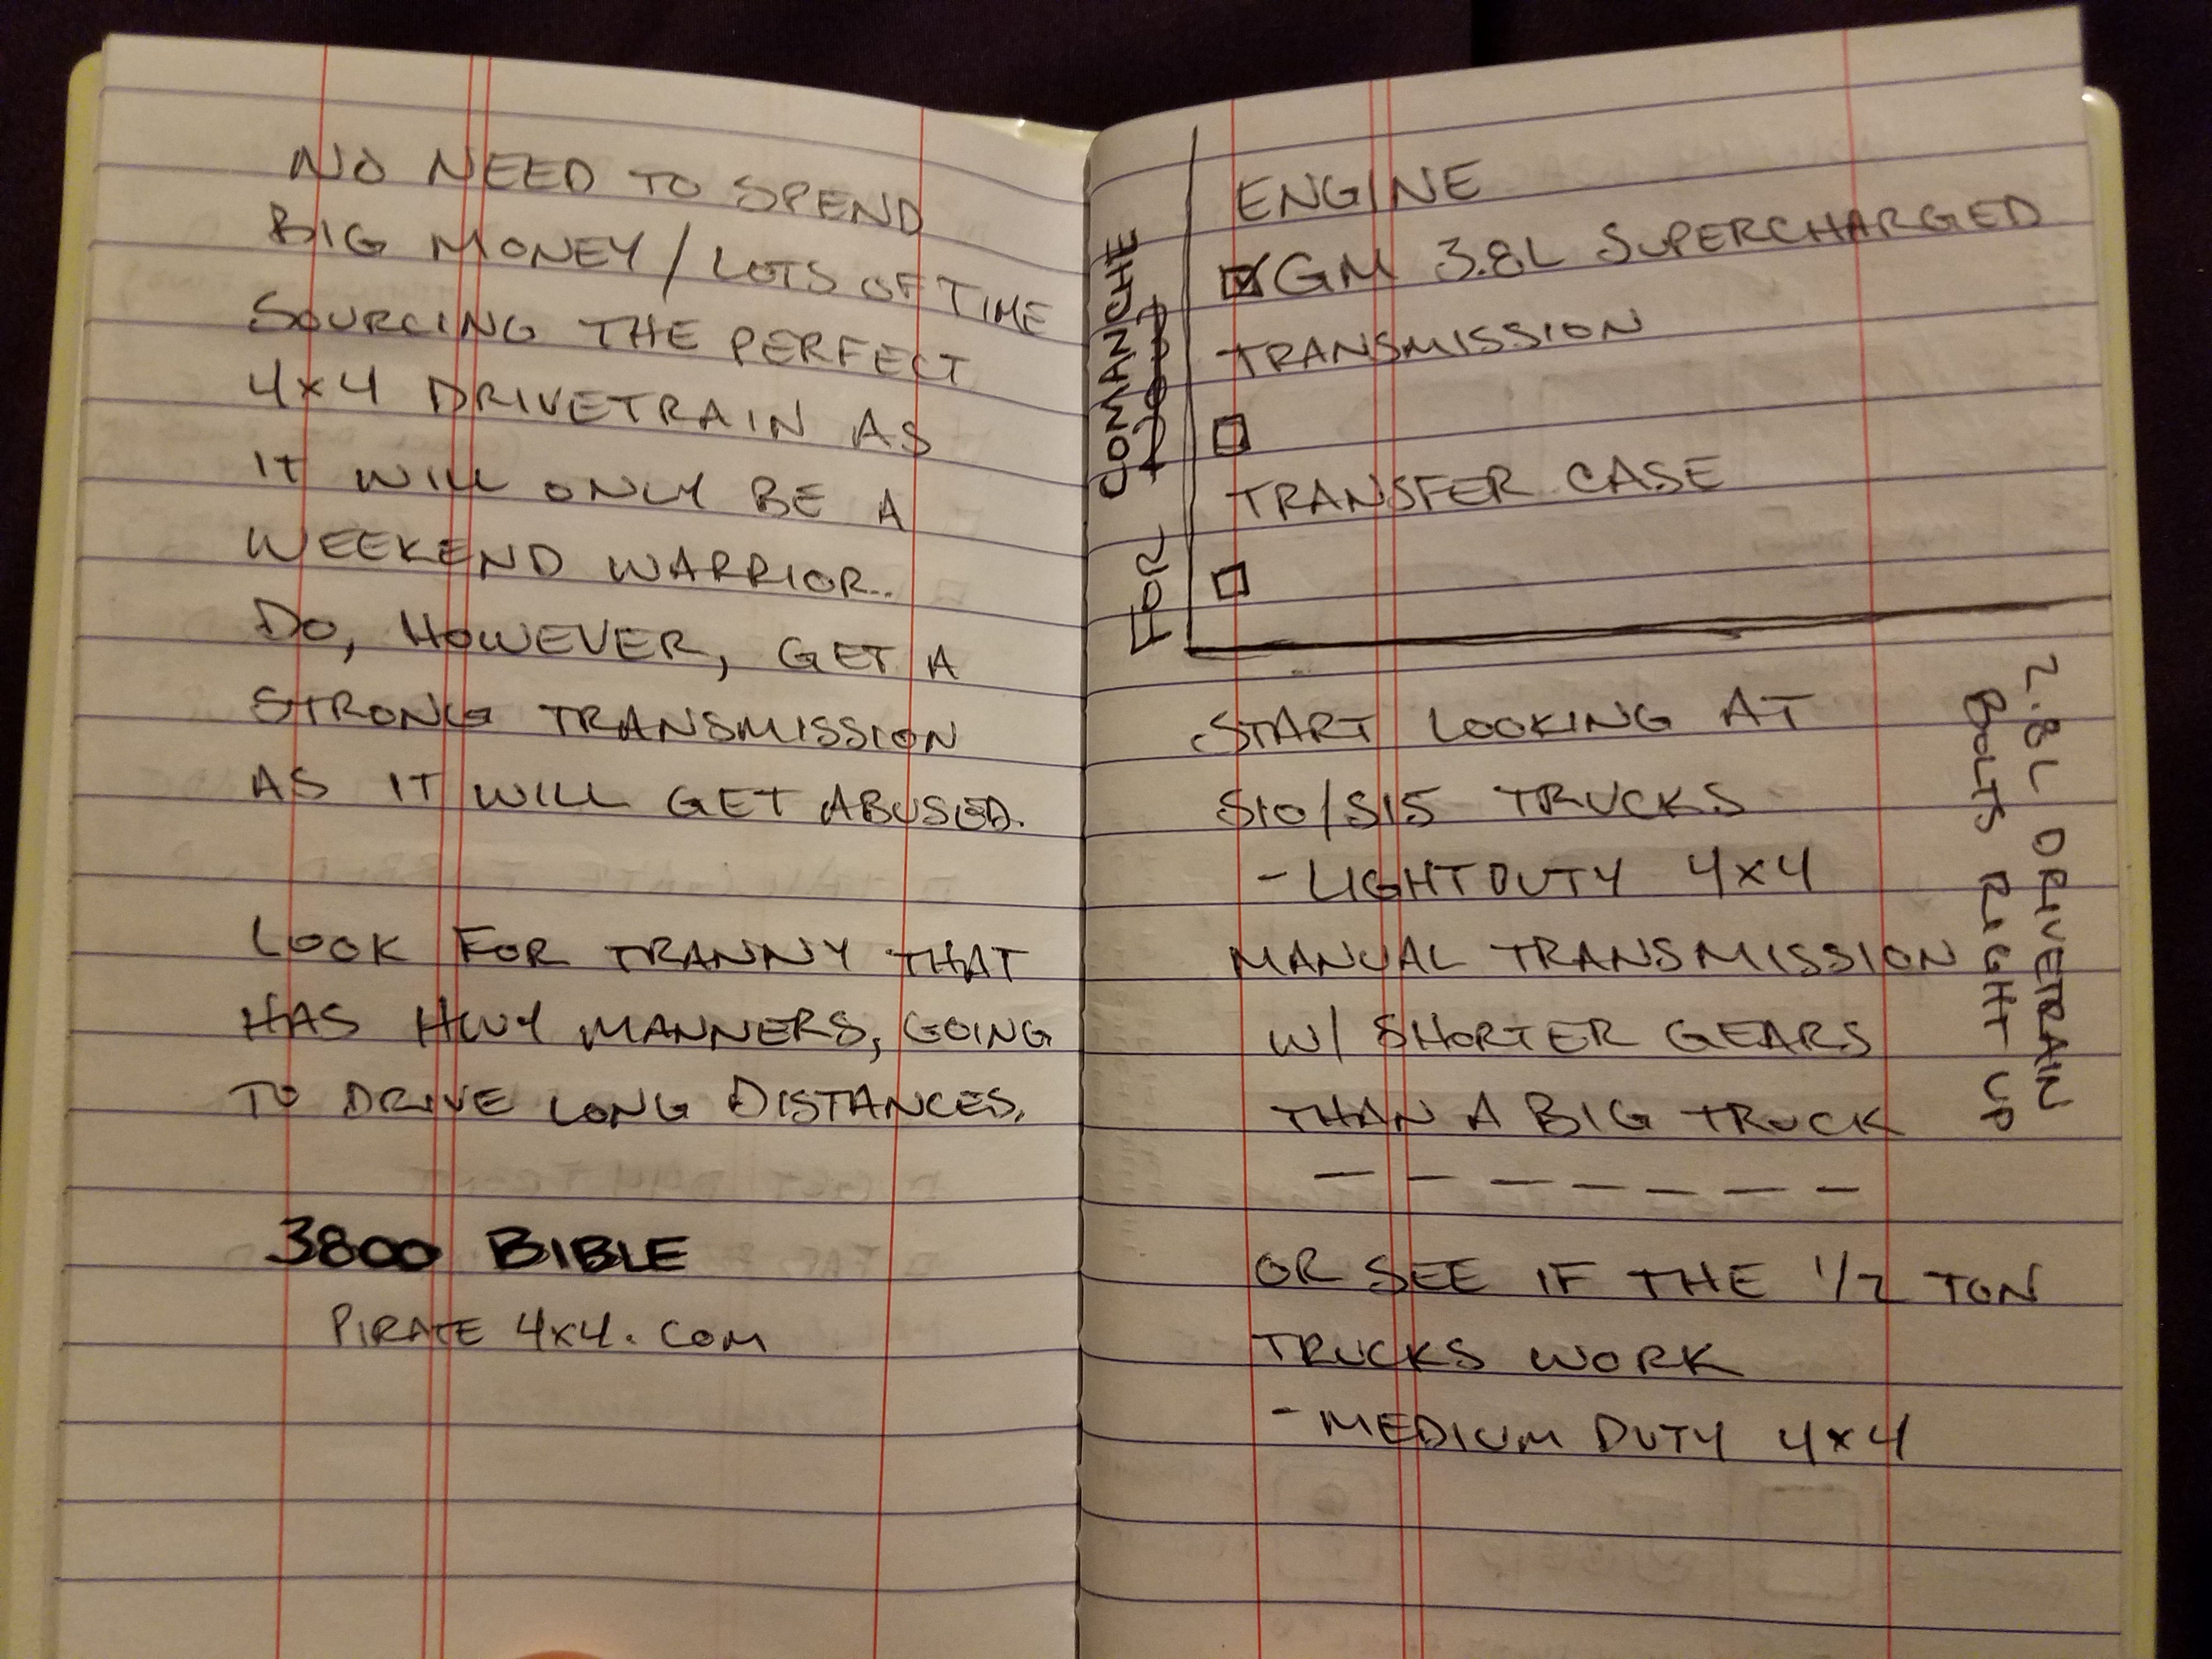 NO NEED TO SPEND
BIG MONEY / LOTS OF TIME
SOURCING THE PERFECT
4x4 DRIVETRAIN AS
IT WILL ONLY BE A
WEEKEND WARRIOR..
DO, HOWEVER, GET A
STRONG TRANSMISSION
AS IT WILL GET ABUSED.
LOOK FOR TRANNY THAT
HAS HWY MANNERS, GOING
TO DRIVE LONG DISTANCES.
3800 BIBLE
PIRATE 4x4.COM
FOR COMANCHE
ENGINE
GM 3.8L SUPERCHARGED
TRANSMISSION
TRANSFER CASE
START LOOKING AT
S10/S15 TRUCKS
- LIGHT DUTY 4x4
MANUAL TRANSMISSION
W/ SHORTER GEARS
THAN A BIG TRUCK
2.8L DRIVETRAIN
BOLTS RIGHT UP
OR SEE IF THE 1/2 TON
TRUCKS WORK
- MEDIUM DUTY 4x4